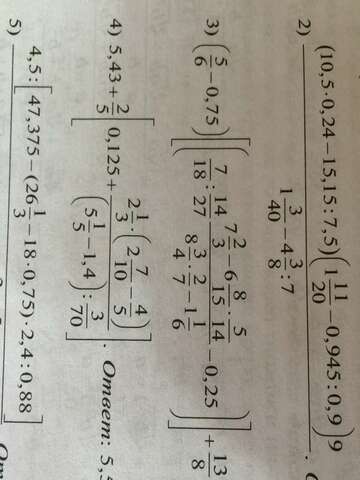 2) \frac{(10,5·0,24−15,15:7,5)(1\frac{11}{20}−0,945:0,9)9}{1\frac{3}{40}−4\frac{3}{8}:7}.
3) (\frac{5}{6}−0,75)[(\frac{7}{18}:\frac{14}{27}\frac{7\frac{2}{3}−6\frac{8}{15}·\frac{5}{14}}{8\frac{3}{4}·\frac{2}{7}−1\frac{1}{6}}−0,25)]+\frac{13}{8}
4) 5,43+\frac{2}{5}[0,125+\frac{2\frac{1}{3}·(2\frac{7}{10}−\frac{4}{5})}{(5\frac{1}{5}−1,4):\frac{3}{70}}]. Ответ: 5,5
5) 4,5:[47,375−(26\frac{1}{3}−18·0,75)·2,4:0,88]